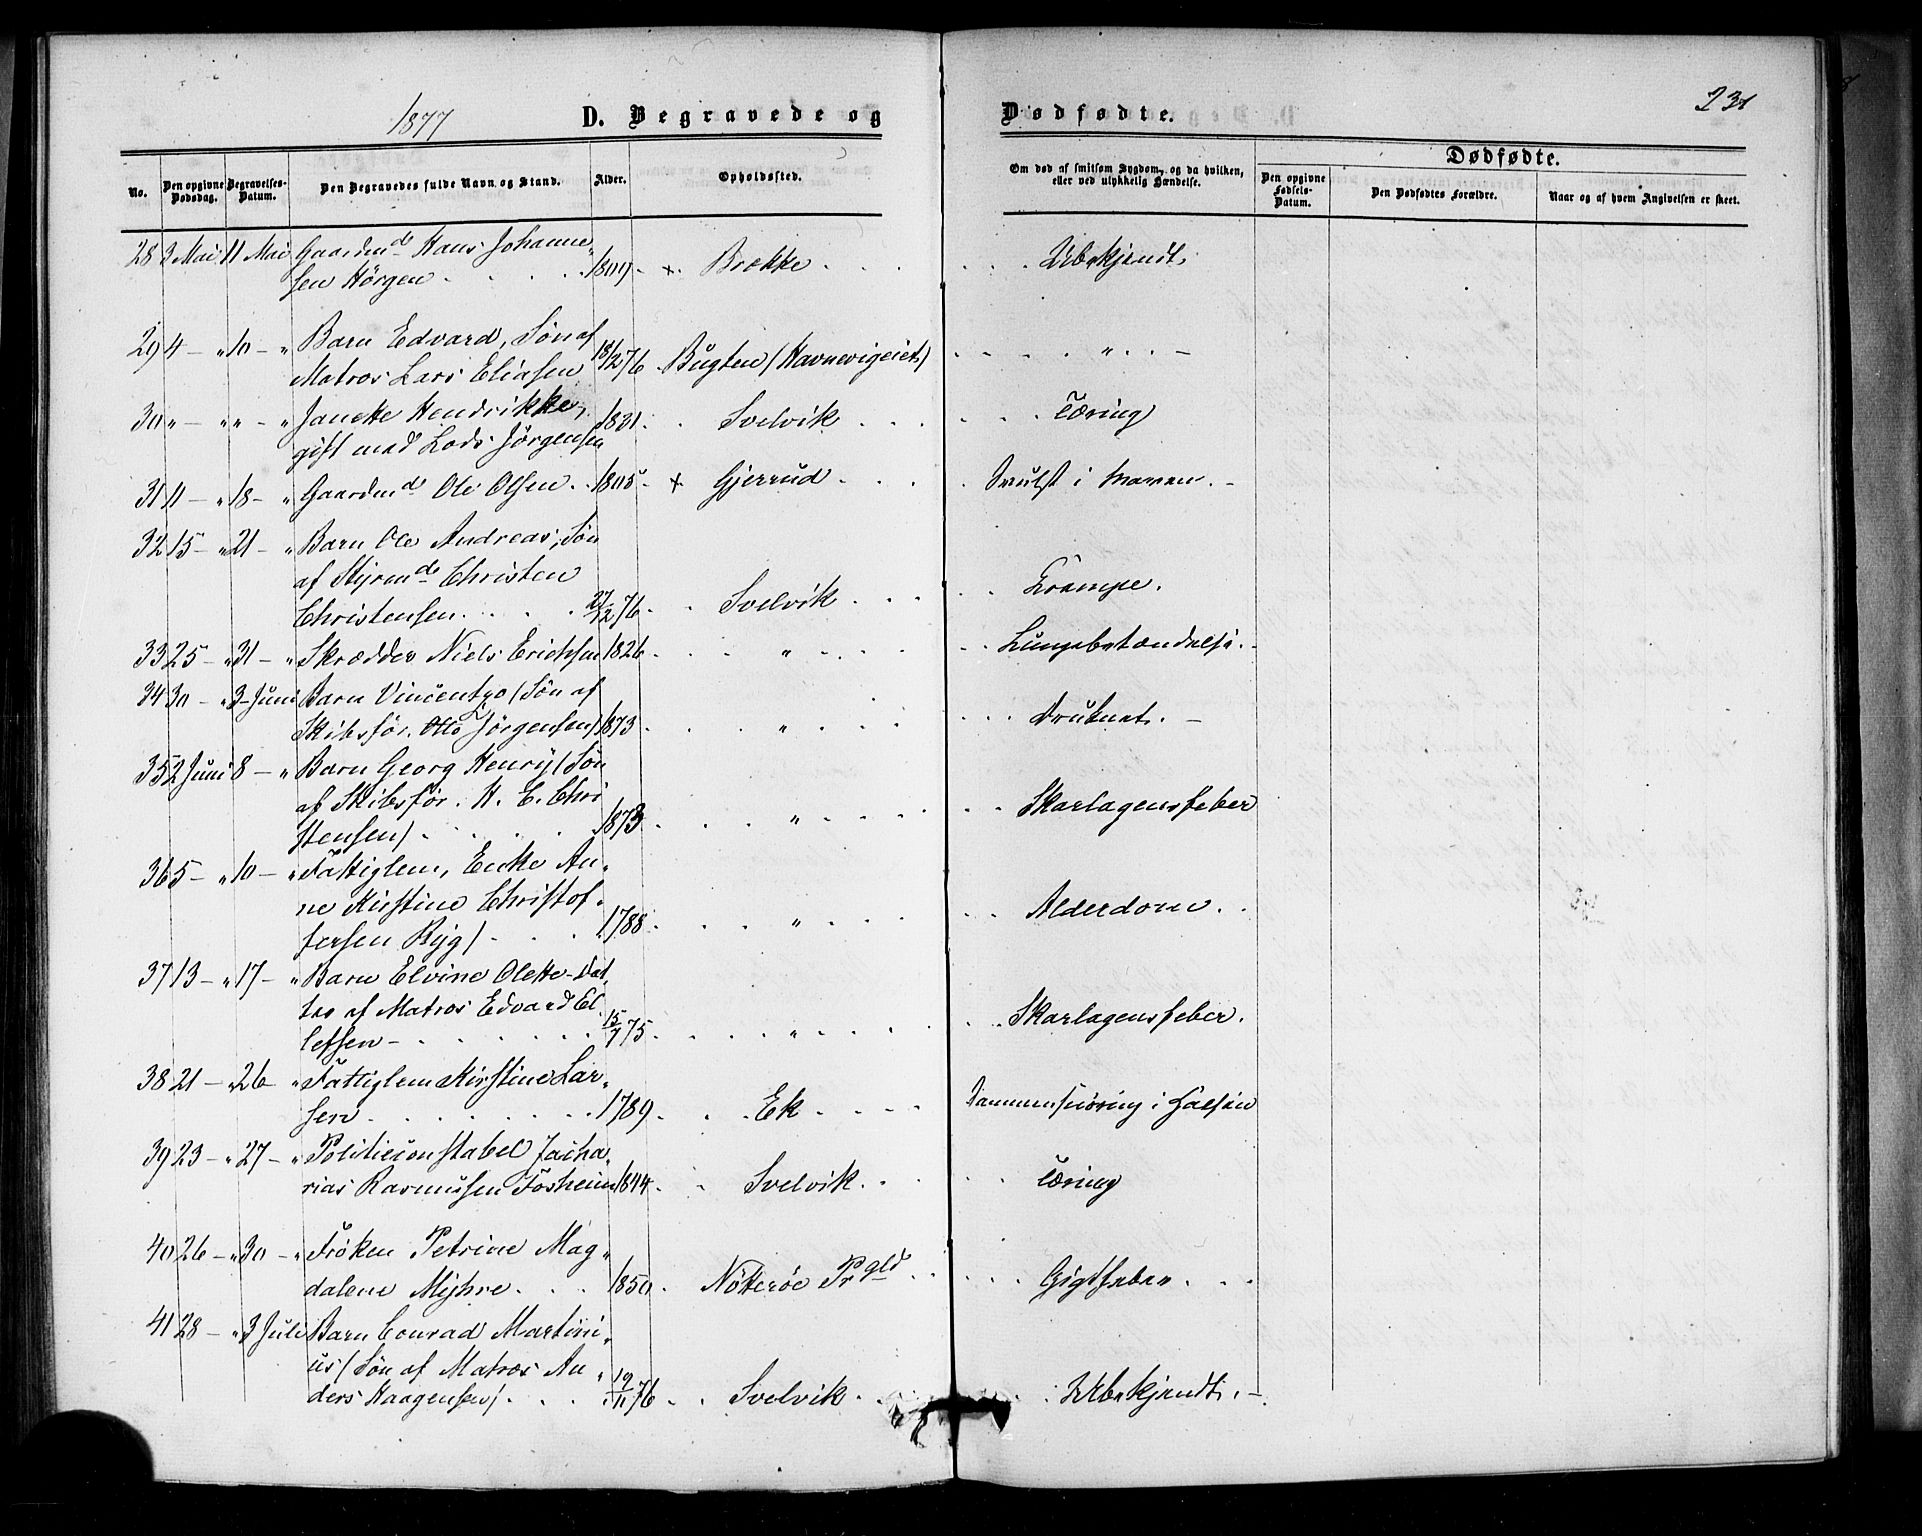 1877
D. Begravede og
Dødfødte.
231
No.
Den opgivne Dødsdag.
Begravelses-Datum.
Den Begravedes fulde Navn og Stand.
Alder.
Opholdssted.
Om død af smitsom Sygdom, og da hvilken, eller ved ulykkelig Hændelse.
Dødfødte.
Den opgivne Fødsels-Datum.
Den Dødfødtes Forældre.
Naar og af hvem Angivelsen er skeet.
28 3 Mai 11 Mai Gaardmd Hans Johanne-
sen Hørgen . . . . 1809. + Brække . . . . . Ubekjendt.
29 4 — " 10 — " Barn Edvard, Søn af
Matros Lars Eliasen 18/12 76 Bugten (Havnevigeiet) . . . " . . —
30 " — " " — " Janette Hendrikke,
gift med Lods Jørgensen 1831 . . Svelvik . . . . . Tæring
31 11 — " 18 — " Gaardmd Ole Olsen . . 1805 + Gjerrud . . . . Svulst i Maven. —
32 15 — " 21 — " Barn Ole Andreas, Søn
af Styrmd Christen
Christensen . . . . 27/12 76 . . Svelvik . . . . . Krampe.
33 25 — " 31 — " Skrædder Niels Erichsen 1826 . . . " . . . . Lungebetændelse. —
34 30 — " 3 Juni Barn Vincentzo (Søn af
Skibsfør. Otto Jørgensen) 1873 . . . " . . . . Druknet. —
35 2 Juni 8 — " Barn Georg Henry (Søn
af Skibsfør. H. E. Chri
stensen) . . . . 1873 . . . " . . . . Skarlagensfeber
36 5 — " 10 — " Fattiglem, Enke An-
ne Kirstine Christof-
fersen Ryg) . . . . 1788 . . . " . . . . Alderdom . .
37 13 — " 17 — " Barn Elvine Olette - Dat
ter af Matros Edvard El
lefsen — . . . . . 15/7 75 . . . " . . . . Skarlagensfeber.
38 21 — " 26 — " Fattiglem Kirstine Lar-
sen . . . . . 1789 . . Ek . . . . Sammensnöring i Halsen
39 23 — " 27 — " Politiconstabel Zacha-
rias Rasmussen Fosheim 1844 . . Svelvik . . . . Tæring
40 26 — " 30 — " Frøken Petrine Mag-
dalene Myhre . . . 1850 . Nötterøe Prgld . . . . . Gigtfeber . . .
41 28 — " 3 Juli Barn Conrad Martini-
us (Søn af Matros An-
ders Haagensen) . . . 19/11 76 . . Svelvik . . . Ubekjendt. —